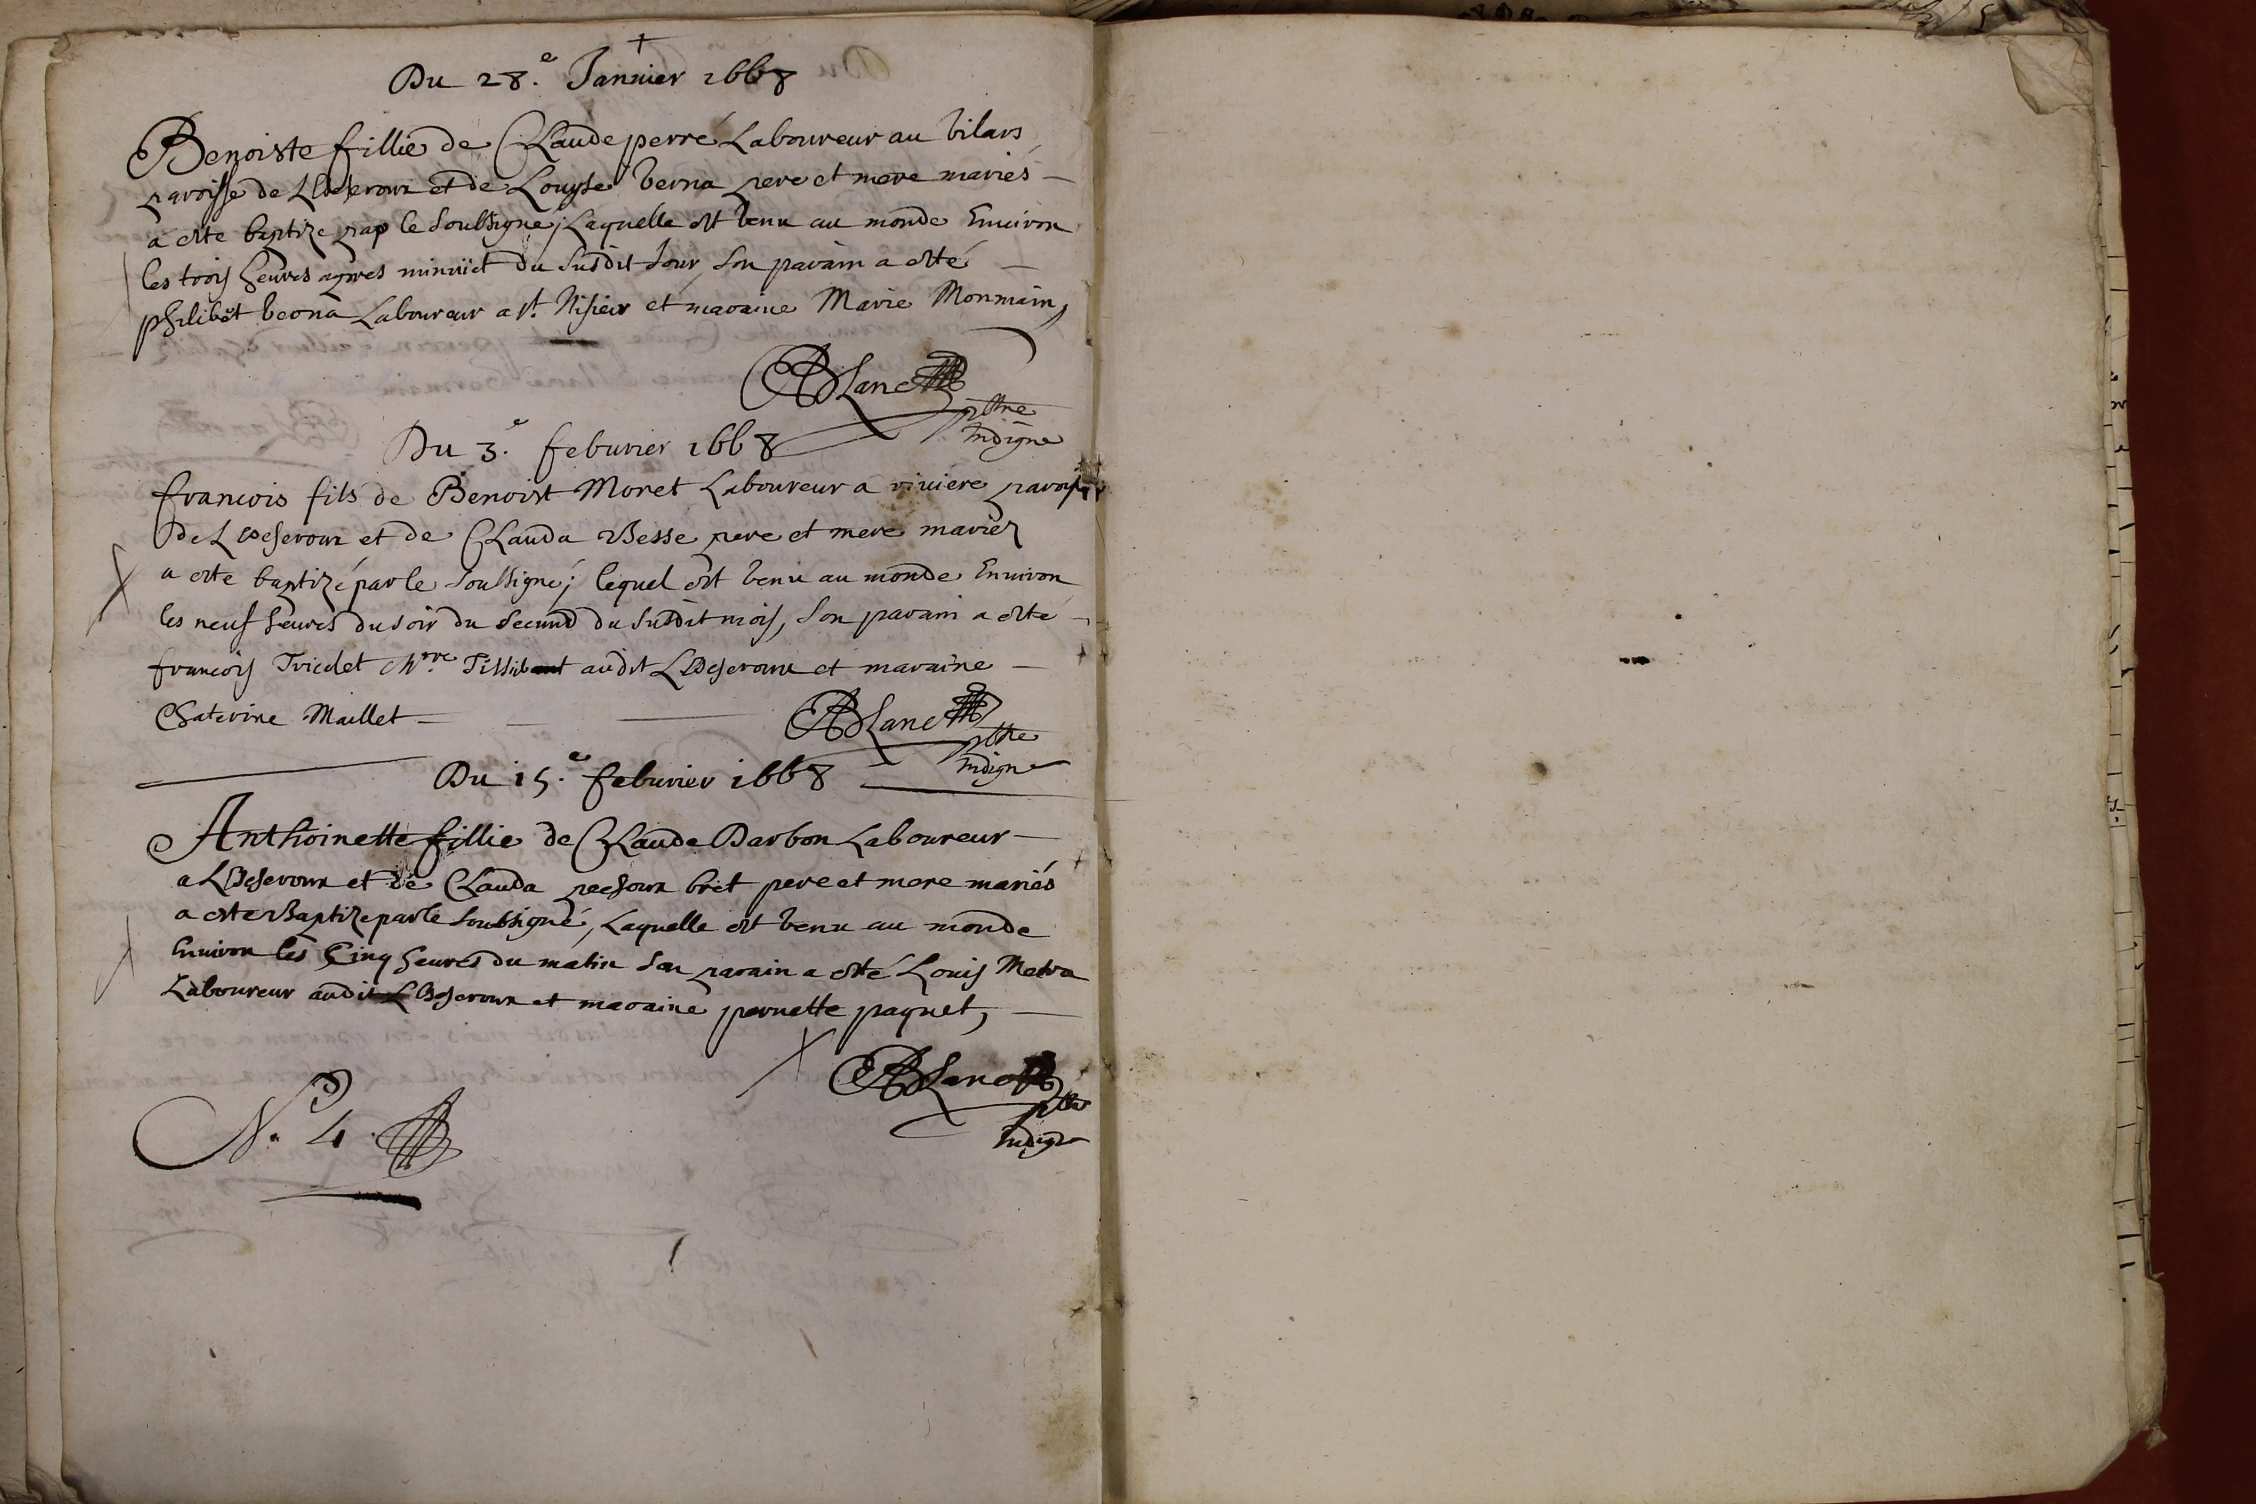 Du 28.e Januier 1668
Benoiste fillie de Claude perré Laboureur au vilars
paroisse de Lescheroux et de Louyse verna pere et mere mariés
a este baptize par le soubsigné; Laquelle est venu au monde Enuiron
les trois heures apres minuict du susdit Jour, son parain a esté
philibert veona Laboureur a st. Nisier et maraine Marie Monmain,
ptre
Indigne
Du 3.e feburier 1668
francois fils de Benoist Moret Laboureur a riuiere paroisse
De Lescheroux et de Clauda Besse pere et mere mariez
a este baptizé par le soubsigné; lequel est venu au monde Enuiron
les neuf heures du soir du second du susdit mois, son parain a esté
francois Tricelet Mre. audit Lescheroux et maraine
Chaterine Maillet
ptre
Indigne
Du 15.e feburier 1668
Anthoinette fillie de Claude Darbon Laboureur
a Lescheroux et de Clauda pechoux bret pere et mere mariés
a este Baptize par le soubsigné, Laquelle est venu au monde
Enuiron les Cinq heures du matin son parain a esté Louis Metra
Laboureur audit Lescheroux et maraine pernette paquet,
ptre
Indigne
No. 4.